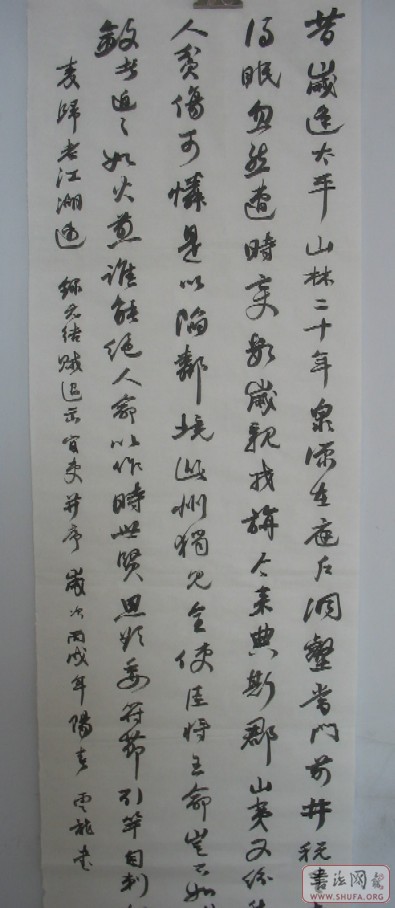 昔歲逢太平山林二十年泉源在庭户洞壑當門前井税
得眠忽然遭時變數歲親戎旃今來典斯郡山夷又紛
人貧傷可憐是以陷鄰境此州獨見全使臣將王命豈不如
斂者迫々如火煎誰能絕人命以作時世賢思欲委符節引竿自刺
麥歸老江湖邊 錄元結賊退示官吏并序 歲次丙戌年陽春 雲龍書
書法网
WWW.SHUFA.ORG